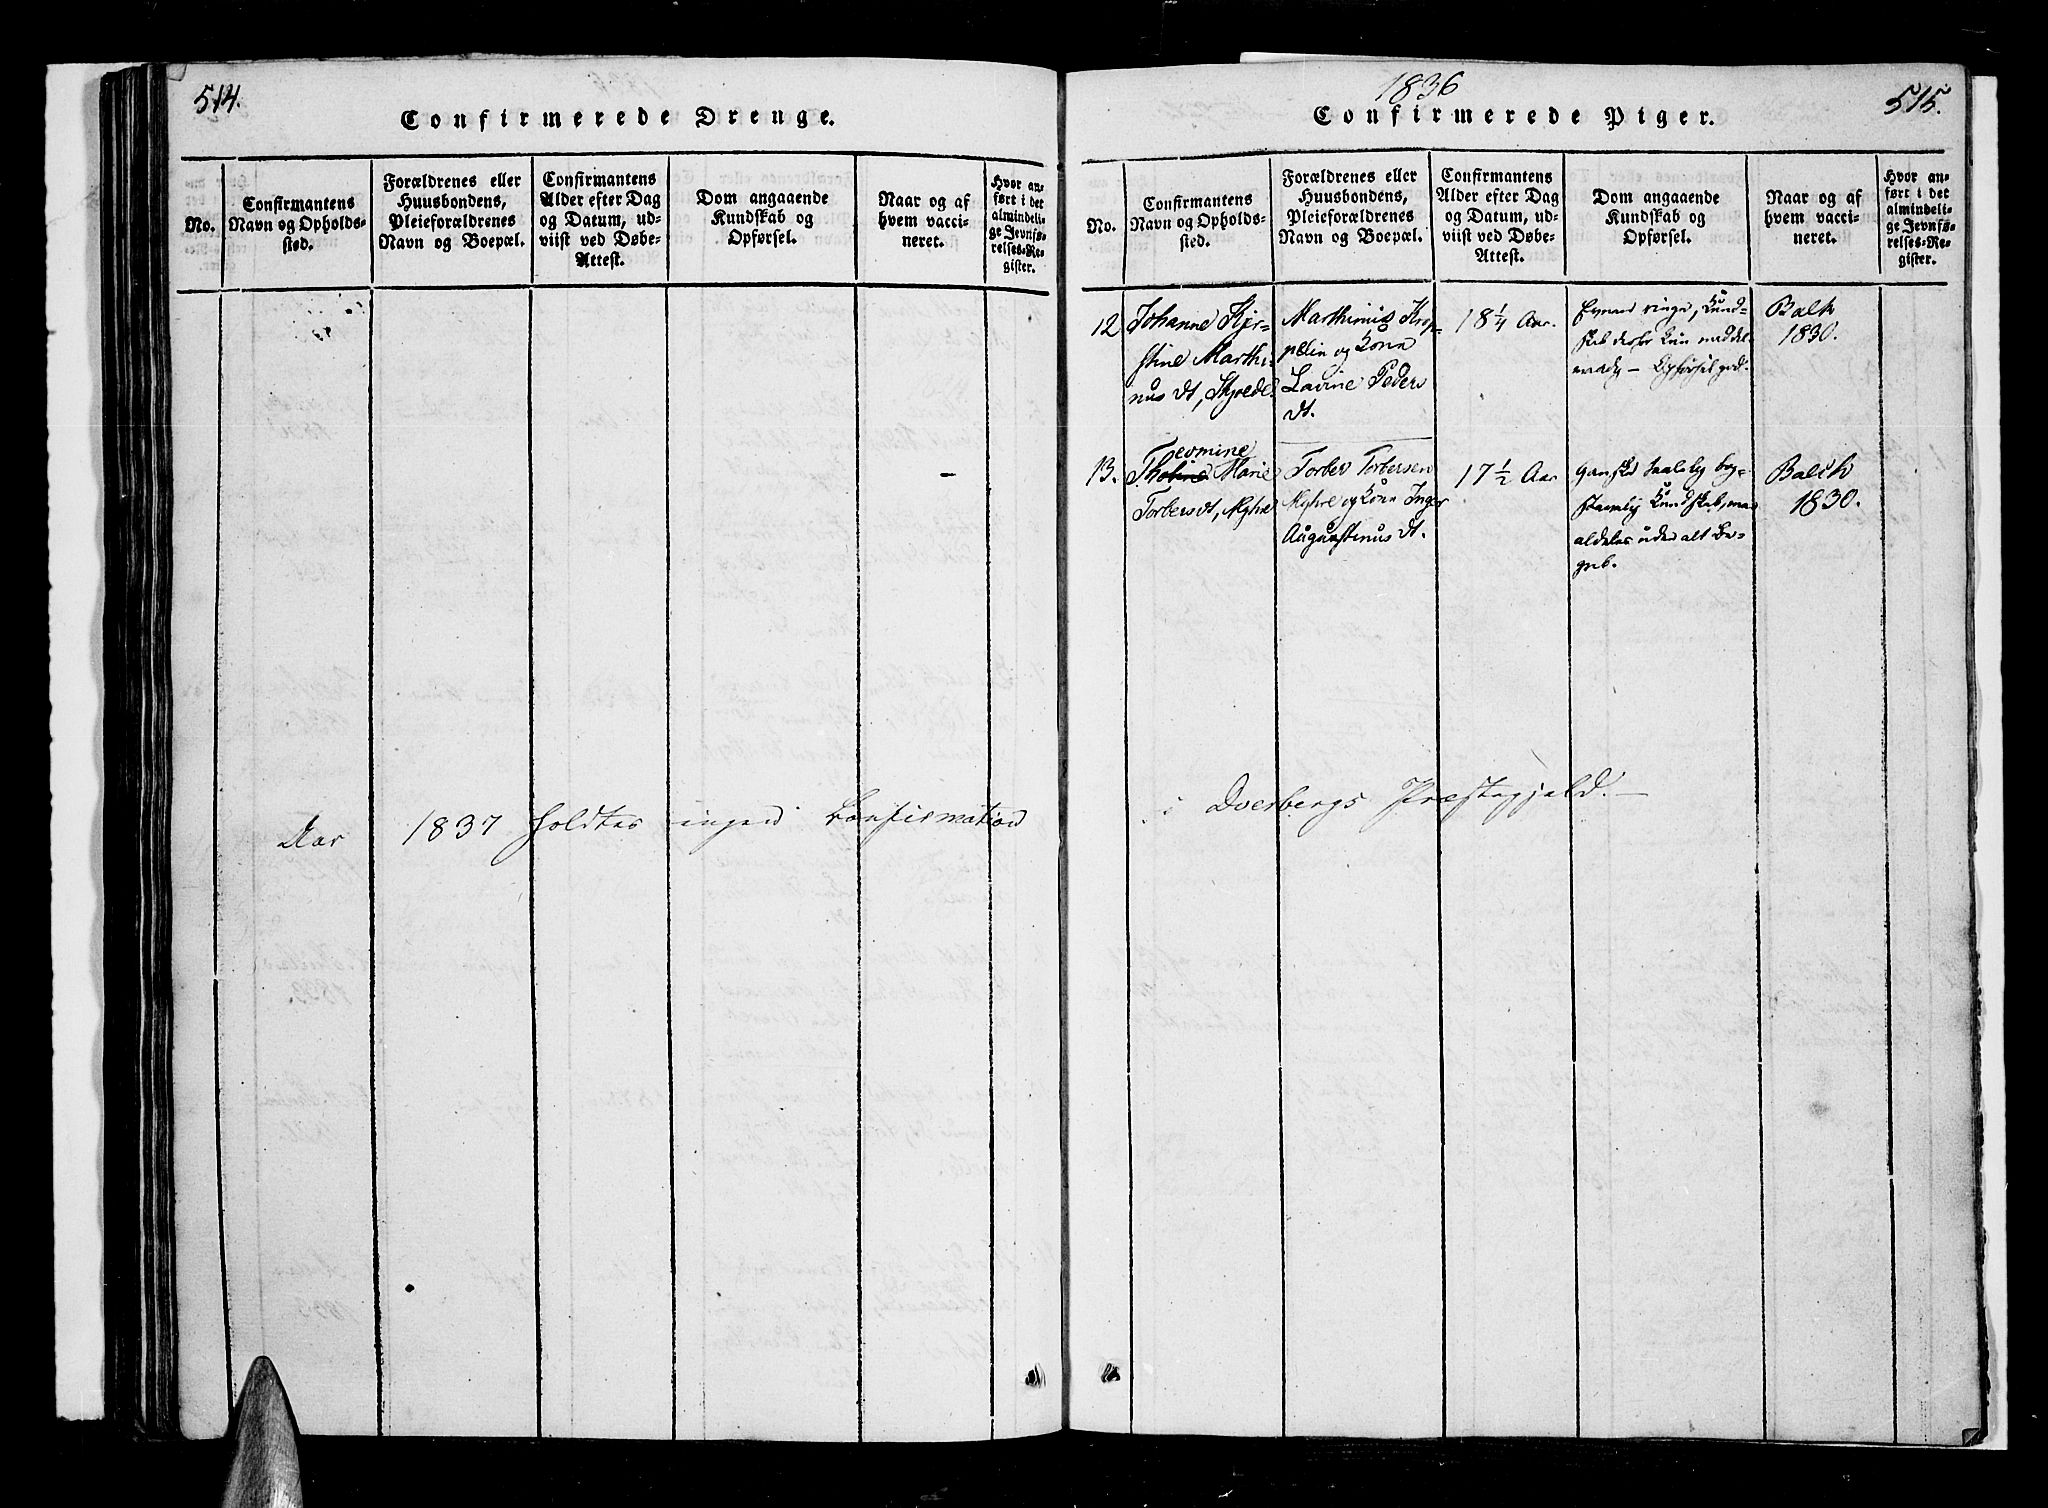 514.
Confirmerede Drenge.
No.
Confirmantens
Navn og Opholds-
sted.
Forældrenes eller
Huusbondens,
Pleieforældrenes
Navn og Boepæl.
Confirmantens
Alder efter Dag
og Datum, ud-
viist ved Døbe-
Attest.
Dom angaaende
Kundskab og
Opførsel.
Naar og af
hvem vacci-
neret.
Hvor an-
ført i det
almindeli-
ge Jevnfø-
relses-Re-
gister.
Aar 1837 holdtes ingen Confirmation
1836
515.
Confirmerede Piger.
No.
Confirmantens
Navn og Opholds-
sted.
Forældrenes eller
Huusbondens,
Pleieforældrenes
Navn og Boepæl.
Confirmantens
Alder efter Dag
og Datum, ud-
viist ved Døbe-
Attest.
Dom angaaende
Kundskab og
Opførsel.
Naar og af
hvem vacci-
neret.
Hvor an-
ført i det
almindeli-
ge Jevnfø-
relses-Re-
gister.
12
Johanne Kjer-
stine Marthi-
nus dt,
Marthinus Krop-
pelin og Kone
Lavine Peders
dt.
18 1/4 Aar.
Evner ringe, Kund-
skab derfor kun middel-
maadig – Opførsel god.
Balk
1830.
13.
Teomine
Marie
Torbersdt, Myhre
Torber Torbersen
Myhre og Kone Inger
Augustinus dt.
17 1/2 Aar
ganske
Kundskab, men
aldeles uden alt Be-
greb.
Balch
1830.
i Dverbergs Præstegjeld.